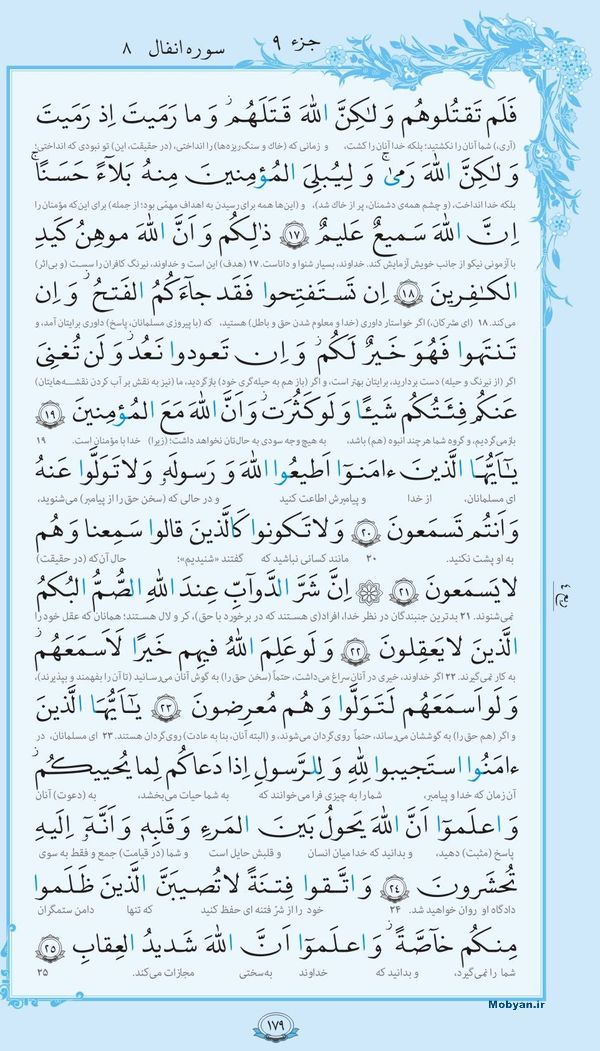 جزء ۹
سوره انفال ۸
فَلَم تَقتُلوهُم وَلٰكِنَّ اللّٰهَ قَتَلَهُم ۚ وَما رَمَيتَ اِذ رَمَيتَ
(آری،) شما آنان را نکشتید؛ بلکه خدا آنان را کشت، و زمانی که (خاك و سنگ‌ریزه‌ها) را انداختی، (در حقیقت، این) تو نبودی که انداختی؛
وَلٰكِنَّ اللّٰهَ رَمىٰ ۚ وَلِيُبلِىَ المُؤمِنينَ مِنهُ بَلآءً حَسَنًا ۚ
بلکه خدا انداخت، (و چشم همه‌ی دشمنان، پر از خاك شد)، و (این‌ها همه برای رسیدن به اهداف مهمّی بود؛ از جمله) برای این‌که مؤمنان را
اِنَّ اللّٰهَ سَميعٌ عَليمٌ ﴿١٧﴾ ذٰلِكُم وَاَنَّ اللّٰهَ موهِنُ كَيدِ
با آزمونی نیکو از جانب خویش آزمایش کند. خداوند، بسیار شنوا و داناست. ۱۷ (هدف) این است و خداوند، نیرنگ کافران را سست (و بی‌اثر)
الكٰفِرينَ ﴿١٨﴾ اِن تَستَفتِحوا فَقَد جآءَكُمُ الفَتحُ ۖ وَاِن
می‌کند. ۱۸ (ای مشرکان،) اگر خواستار داوری (خدا و معلوم شدن حق و باطل) هستید، که (با پیروزی مسلمانان، پاسخ) داوری برایتان آمد، و
تَنتَهوا فَهُوَ خَيرٌ لَكُم ۖ وَاِن تَعودوا نَعُد وَلَن تُغنِىَ
اگر (از نیرنگ و حیله) دست بردارید، برایتان بهتر است، و اگر (باز هم به حیله‌گری خود) بازگردید، ما (نیز به نقش بر آب کردن نقشه‌هایتان)
عَنكُم فِئَتُكُم شَيـًٔا وَلَو كَثُرَت وَاَنَّ اللّٰهَ مَعَ المُؤمِنينَ ﴿١٩﴾
بازمی‌گردیم، و گروه شما هرچند انبوه (هم) باشد، به هیچ وجه سودی به حال‌تان نخواهد داشت؛ (زیرا) خدا با مؤمنان است. ۱۹
يٰاَيُّهَا الَّذينَ ءامَنوا اَطيعُوا اللّٰهَ وَرَسولَهُ وَلا تَوَلَّوا عَنهُ
ای مسلمانان، از خدا و پیامبرش اطاعت کنید و در حالی که (سخن حق را از پیامبر) می‌شنوید،
وَاَنتُم تَسمَعونَ ﴿٢٠﴾ وَلا تَكونوا كَالَّذينَ قالوا سَمِعنا وَهُم
به او پشت نکنید. ۲۰ مانند کسانی نباشید که گفتند «شنیدیم»؛ حال آن‌که (در حقیقت)
لا يَسمَعونَ ﴿٢١﴾ ۞ اِنَّ شَرَّ الدَّوآبِّ عِندَ اللّٰهِ الصُّمُّ البُكمُ
نمی‌شنوند. ۲۱ بدترین جنبندگان در نظر خدا، افراد(ی هستند که در برخورد با حق)، کر و لال هستند؛ همانان که عقل خود را
الَّذينَ لا يَعقِلونَ ﴿٢٢﴾ وَلَو عَلِمَ اللّٰهُ فيهِم خَيرًا لَاَسمَعَهُم ۖ
به کار نمی‌گیرند. ۲۲ اگر خداوند، خیری در آنان سراغ می‌داشت، حتماً (سخن حق را) به گوش آنان می‌رسانید (تا آن را بفهمند و بپذیرند)،
وَلَو اَسمَعَهُم لَتَوَلَّوا وَهُم مُعرِضونَ ﴿٢٣﴾ يٰاَيُّهَا الَّذينَ
و اگر (هم حق را) به گوششان می‌رساند، حتماً روی‌گردان می‌شوند، و (البته آنان، بنا به عادت) روی‌گردان هستند. ۲۳ ای مسلمانان، در
ءامَنُوا استَجيبوا لِلّٰهِ وَلِلرَّسولِ اِذا دَعاكُم لِما يُحييكُم ۖ
آن زمان که خدا و پیامبر، شما را به چیزی فرا می‌خوانند که به شما حیات می‌بخشد، به (دعوت) آنان
وَاعلَموا اَنَّ اللّٰهَ يَحولُ بَينَ المَرءِ وَقَلبِهِ وَاَنَّهُ اِلَيهِ
پاسخ (مثبت) دهید، و بدانید که خدا میان انسان و قلبش حایل است و شما (در قیامت) جمع و فقط به سوی
تُحشَرونَ ﴿٢٤﴾ وَاتَّقوا فِتنَةً لا تُصيبَنَّ الَّذينَ ظَلَموا
دادگاه او روان خواهید شد. ۲۴ خود را از شرّ فتنه ای حفظ کنید که تنها دامن ستمگران
مِنكُم خآصَّةً ۖ وَاعلَموا اَنَّ اللّٰهَ شَديدُ العِقابِ ﴿٢٥﴾
شما را نمی‌گیرد، و بدانید که خداوند به‌سختی مجازات می‌کند. ۲۵
۱۷۹
Mobyan.ir